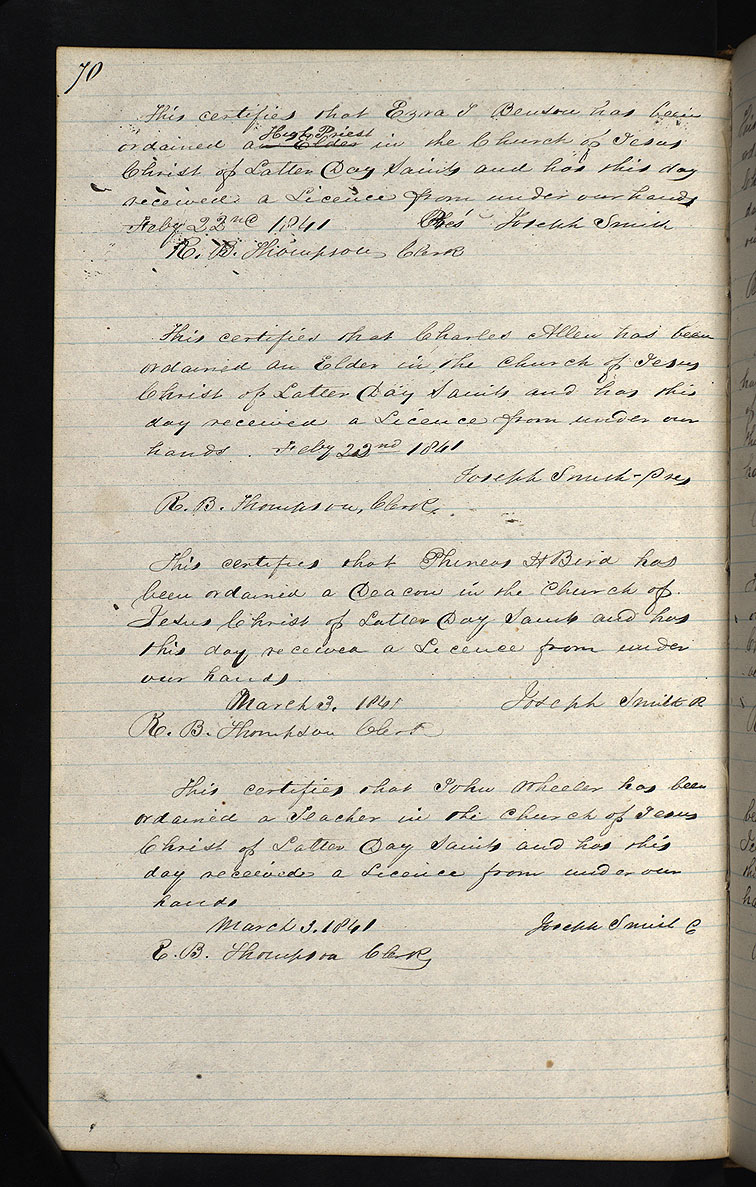 70
This certifies that Ezra T Benson has been
High Priest
ordained a Elder in the Church of Jesus
Christ of Latter Day Saints and has this day
received a Licence from under our hands
Feby 22nd 1841 Pres Joseph Smith
R. B. Thompson Clerk
This certifies that Charles Allen has been
ordained an Elder in the Church of Jesus
Christ of Latter Day Saints and has this
day received a Licence from under our
hands. Feby 22nd 1841
Joseph Smith - Pres
R. B. Thompson, Clerk.
This certifies that Phineas H Bird has
been ordained a Deacon in the Church of
Jesus Christ of Latter Day Saints and has
this day received a Licence from under
our hands.
March 3. 1841 Joseph Smith
R. B. Thompson Clerk
This certifies that John Wheeler has been
ordained a Teacher in the Church of Jesus
Christ of Latter Day Saints and has this
day received a Licence from under our
hands
March 3. 1841 Joseph Smith
R. B. Thompson Clerk